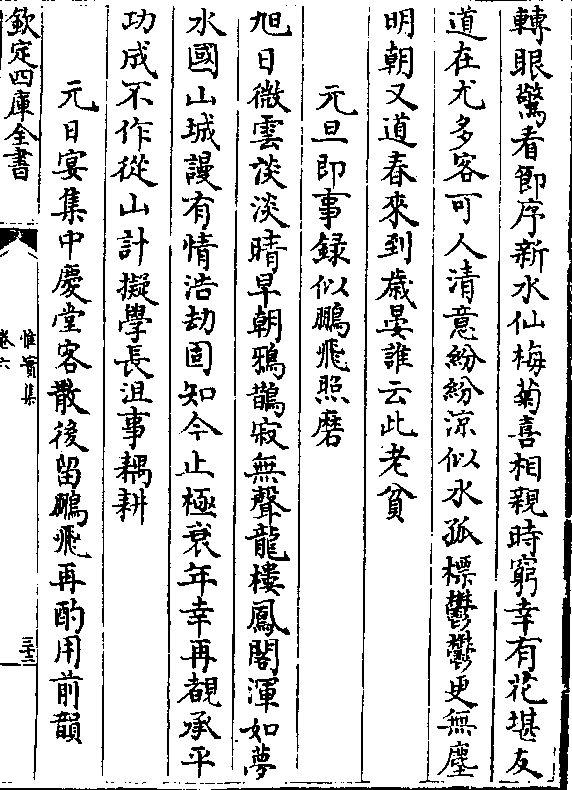 轉眼驚看節序新水仙梅菊喜相親時窮幸有花堪友
道在尤多客可人清意紛紛涼似水孤標鬱鬱更無塵
明朝又道春來到歲晏誰云此老貧
元旦即事録似鵬飛照磨
旭日微雲淡淡晴早朝鴉鵲寂無聲龍樓鳳閣渾如夢
水國山城謾有情浩劫固知今止極衰年幸再覩承平
功成不作從山計擬學長沮事耦耕
元日宴集中慶堂客散後留鵬飛再酌用前韻
欽定四庫全書
惟實集
卷六
三十三